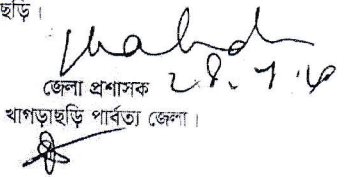 ছড়ি।
জেলা প্রশাসক
খাগড়াছড়ি পার্বত্য জেলা।